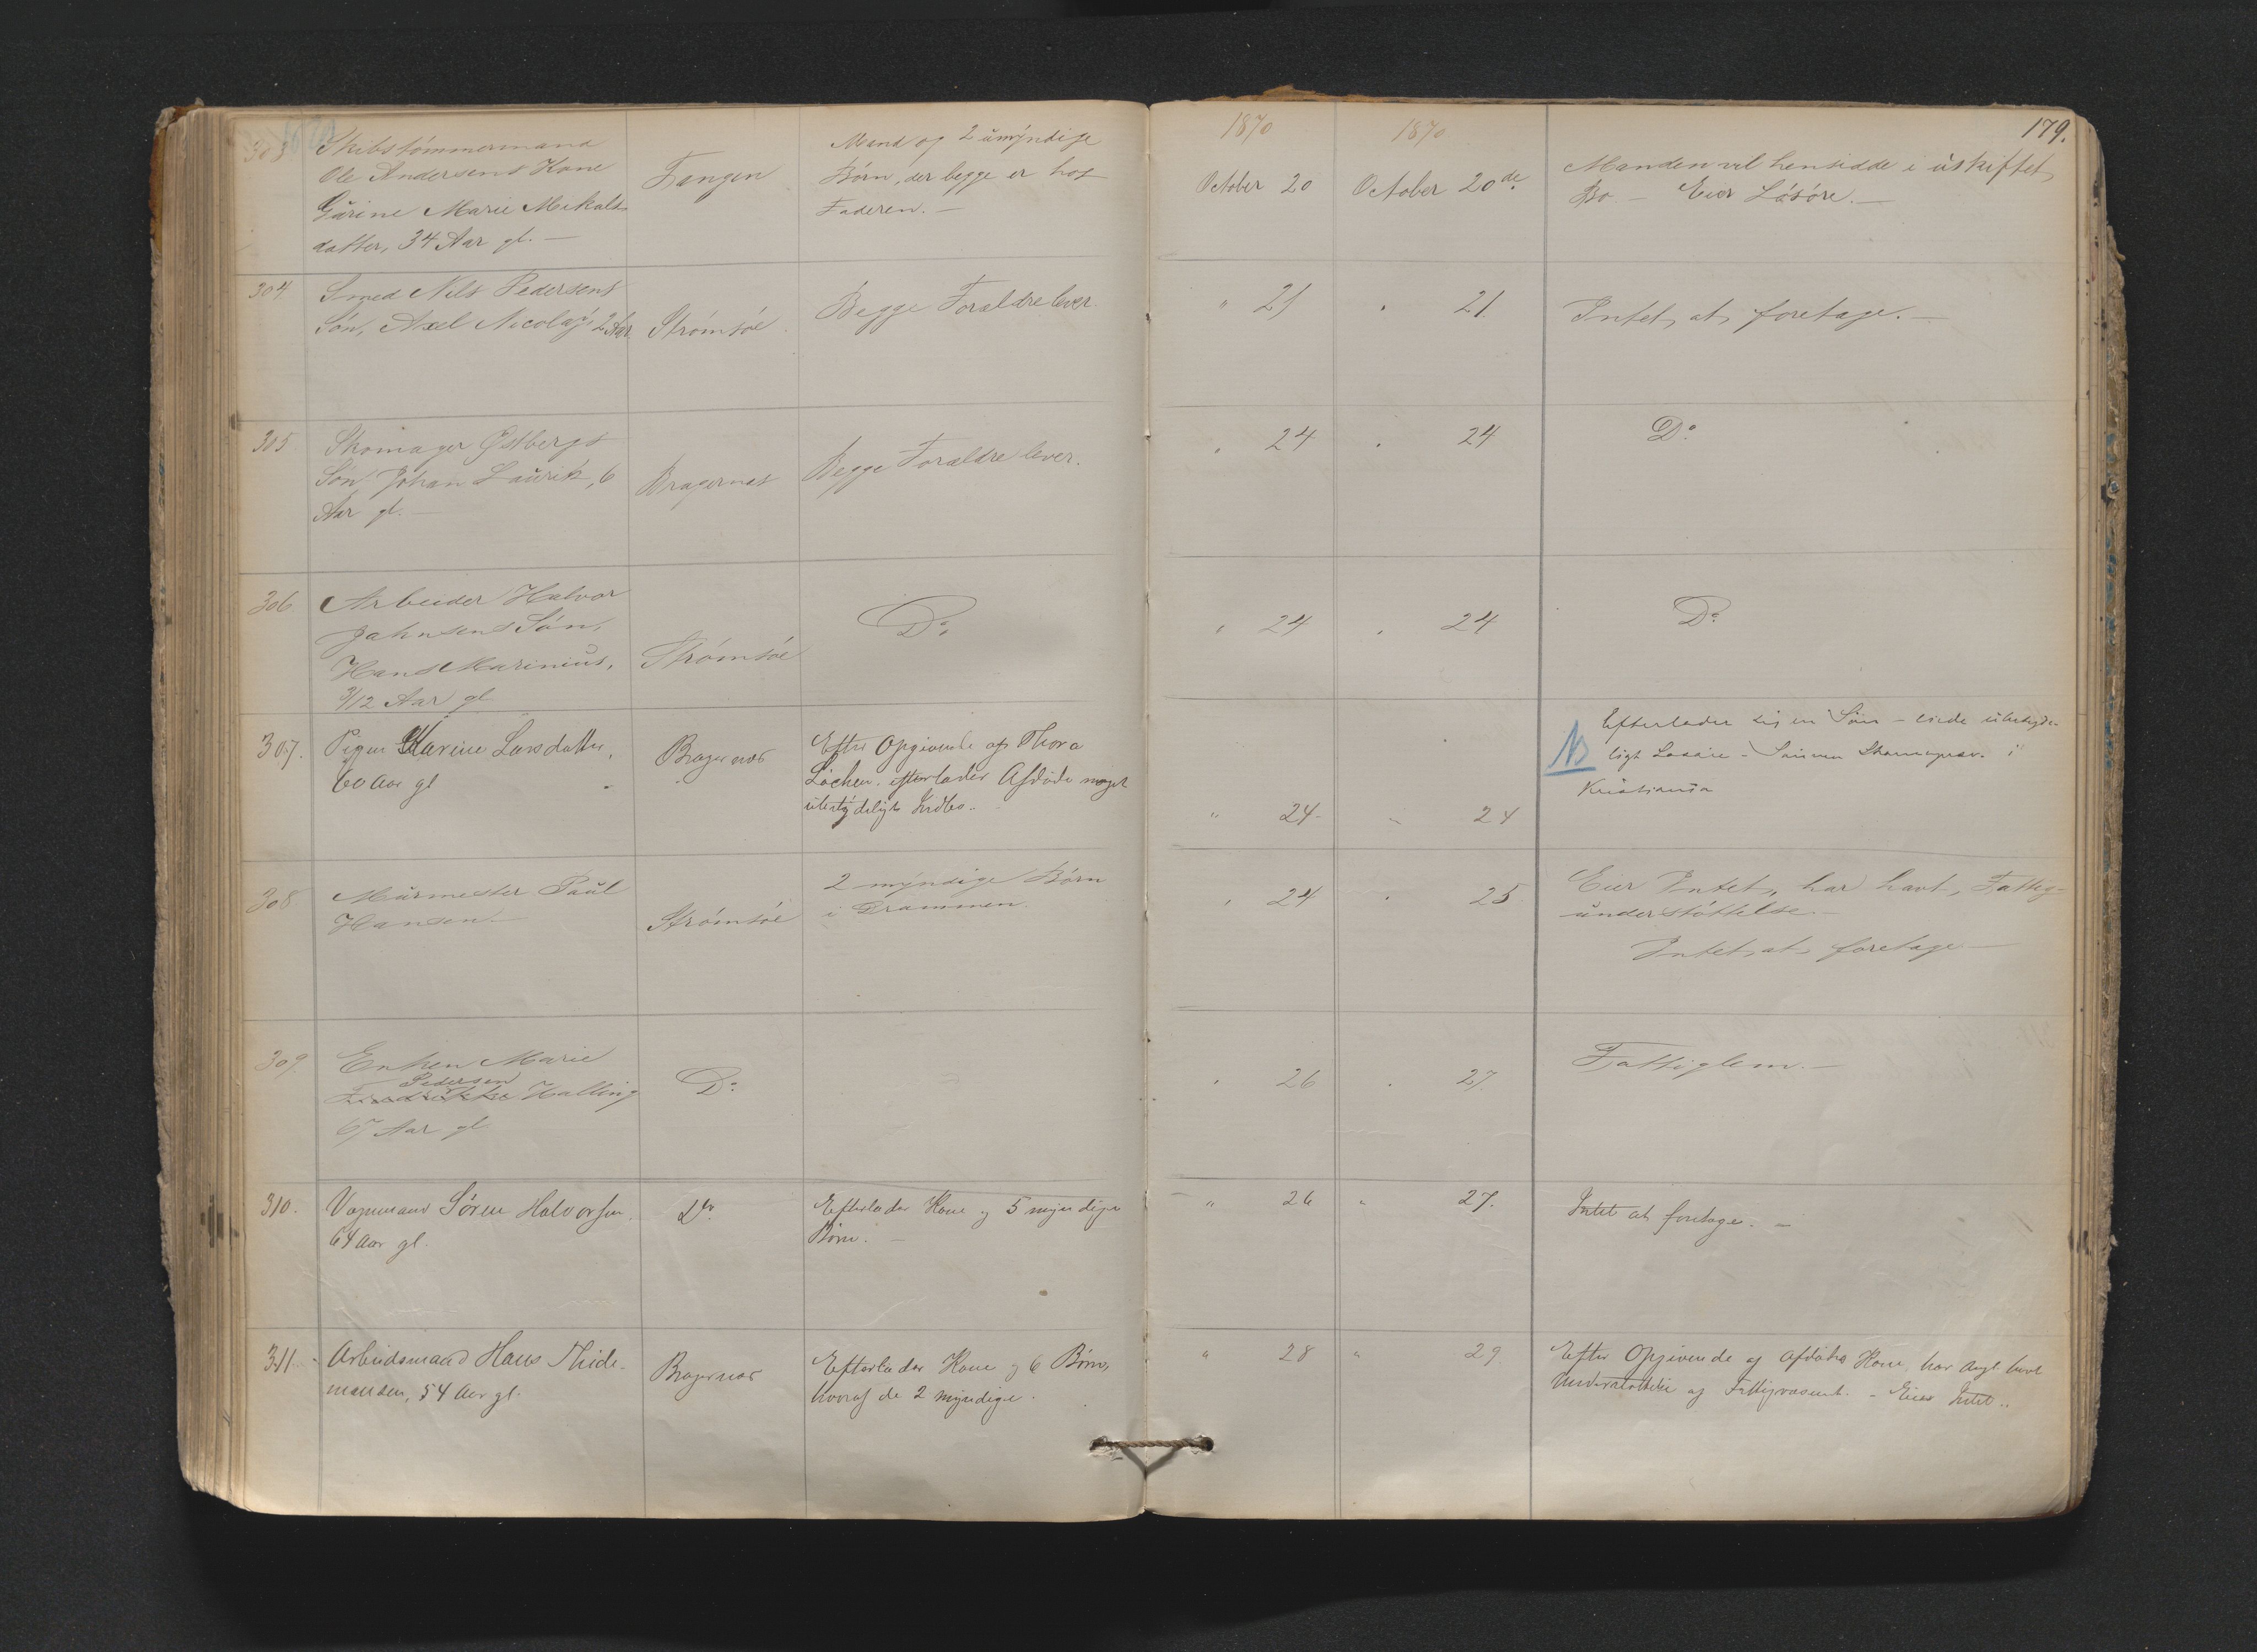 1870
1870
179.
303
Skibstømmermand
Ole Andersens Kone
Gurine Marie Mikals
datter, 34 Aar gl. —
Tangen
Mand og 2 umyndige
Børn, der begge er hos
Faderen. —
October 20
October 20de
Manden vil hensidde i uskiftet
Bo — Eier Løsøre. —
304
Smed Nils Pedersens
Søn, Axel Nicolaj, 2 Aar
Strømsøe
Begge Forældre lever
" 21
" 21.
Intet at foretage. —
305
Skomager Østbergs
Søn Johan Laurik, 6
Aar gl. —
Bragernæs
Begge Forældre lever.
" 24
" 24
Do
306
Arbeider Halvor
Jahnsens Søn,
Hans Marinius,
3/12 Aar gl
Strømsøe
Do
" 24
" 24
Do
307.
Pigen Karine Larsdatter,
60 Aar gl
Bragernæs
Efter Opgivende af Thora
Löchen. efterlader Afdøde meget
ubetydeligt Indbo.
" 24
" 24
NB
Efterlader sig en Søn —
ligt Løsøre — Sønnen i
Kristiania
308
Murmester Paul
Hansen —
Strømsøe
2 myndige Børn
i Drammen.
" 24
" 25
Eier Intet, har havt Fattig-
understøttelse. —
Intet at foretage —
309.
Enken Marie
Pedersen
Halling
67 Aar gl
Do
" 26
" 27.
Fattiglem. —
310.
Vognmand Søren Halvorsen.
64 Aar gl.
Do
Efterlader Kone og 5 myndige
Børn. —
" 26
" 27.
Intet at foretage. —
311
Arbeidsmand Hans Thide-
mansen, 54 Aar gl.
Bragernæs
Efterlader Kone og 6 Børn,
hvoraf de 2 myndige.
" 28
" 29
Efter Opgivende af Afdødes Kone har havt
Understøttelse af Fattigvæsenet. — Eier Intet..